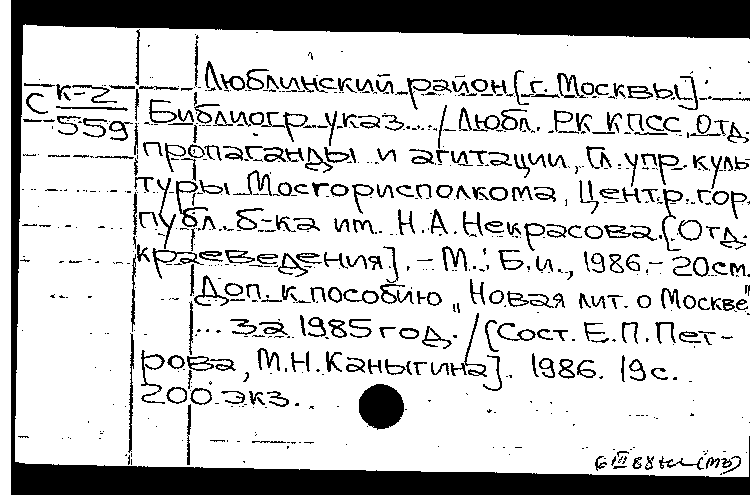 Люблинский район [г. Москвы].
С к-2/559
Библиогр. указ... / Любл. РК КПСС, Отд.
пропаганды и агитации, Гл. упр. куль-
туры Мосгорисполкома, Центр. гор.
публ. б-ка им. Н.А.Некрасова. [Отд.
краеведения]. – М.: Б.и., 1986.– 20см.
Доп. к пособию „Новая лит. о Москве"
... за 1985 год. / [Сост. Е.П.Пет-
рова, М.Н.Каныгина]. 1986. 19с.
200 экз.
6 III 88